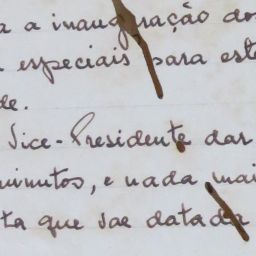 a a inauguração do
especiais para est
de.
Vice-Presidente dar
minutos, e nada mai
ta que sae datada